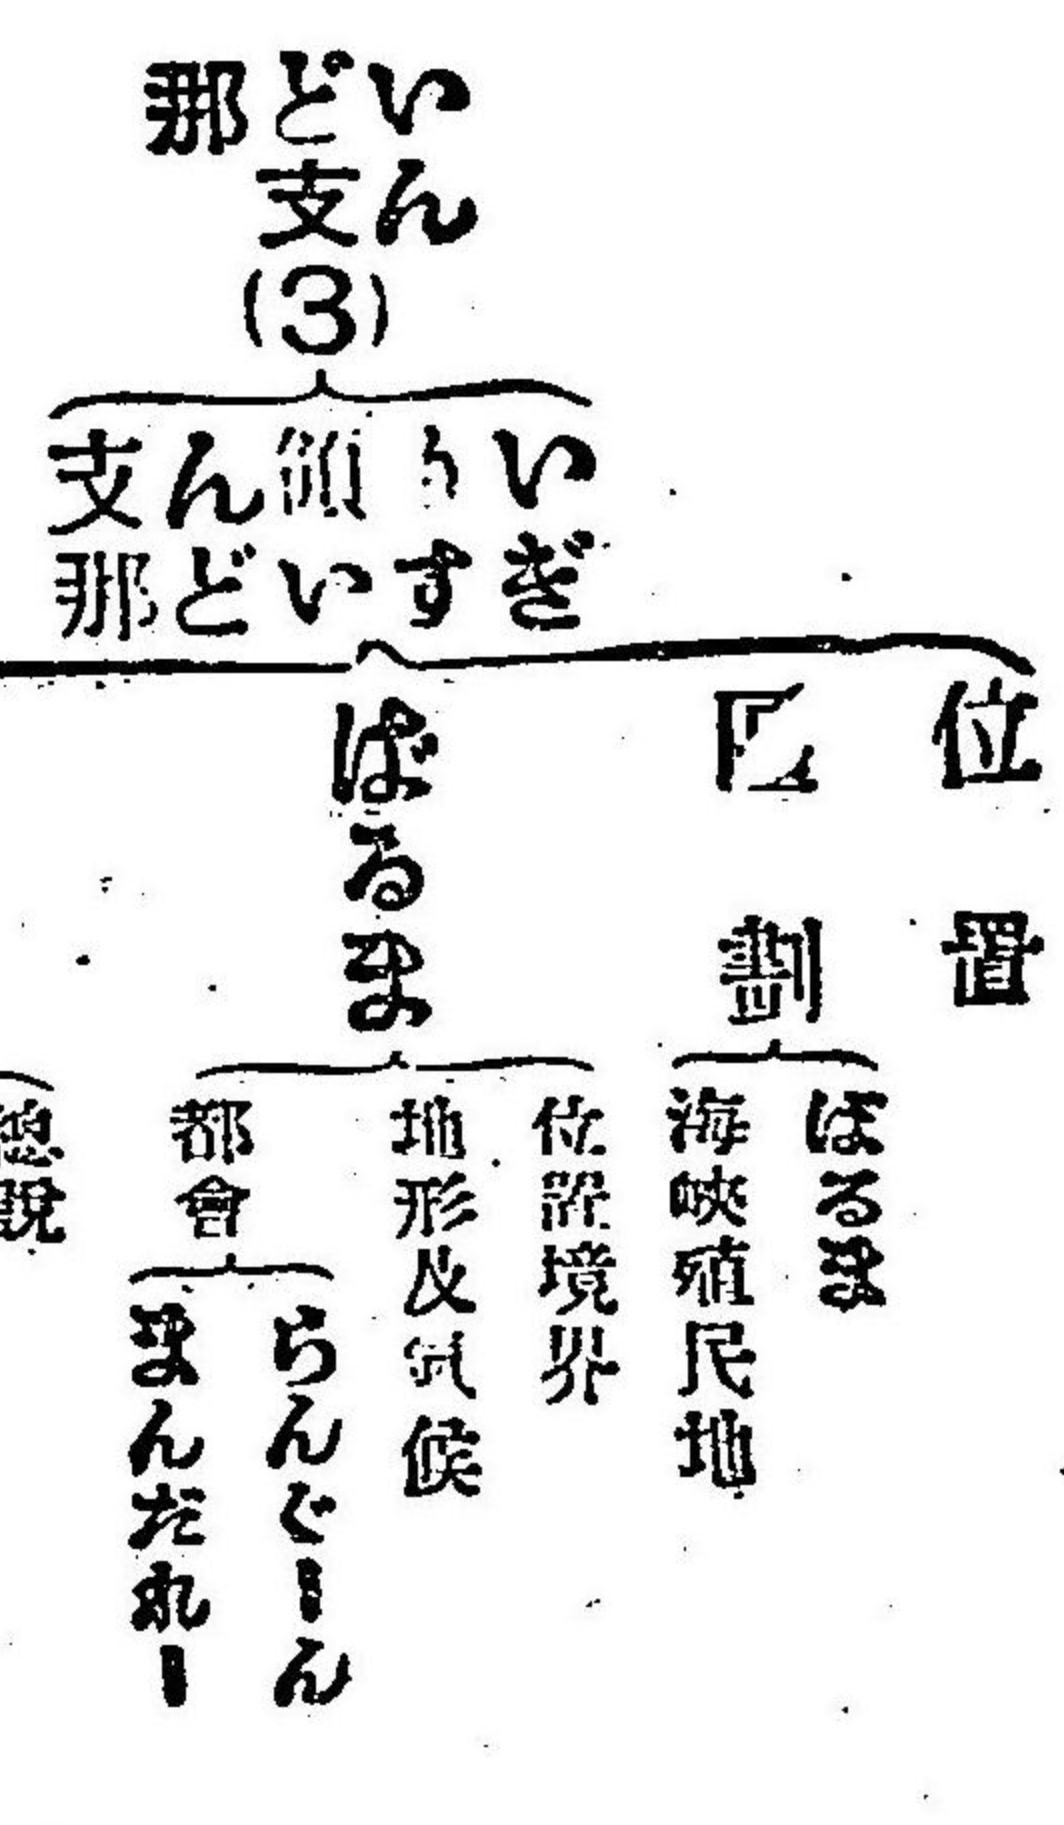 いんど支那
(3)
いぎりす領いんど支那
位置
区劃
ばるま
海峽殖民地
ばるま
位置境界
地形及气候
都會
らんぐーん
まんだれー
總說